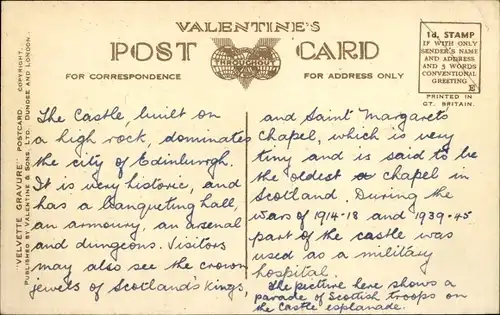 VALENTINE'S
POST CARD
FOR CORRESPONDENCE
FOR ADDRESS ONLY
1d. STAMP
IF WITH ONLY
SENDER'S NAME
AND ADDRESS
AND 5 WORDS
CONVENTIONAL
GREETING
E
PRINTED IN
GT. BRITAIN.
"VELVETTE GRAVURE" POSTCARD. COPYRIGHT.
PUBLISHED BY VALENTINE & SONS, LTD. DUNDEE AND LONDON.
The Castle, built on
a high rock, dominates
the city of Edinburgh.
It is very historic, and
has a banqueting hall,
an armoury, an arsenal
and dungeons. Visitors
may also see the crown
jewels of Scotland's kings,
and Saint Margaret's
Chapel, which is very
tiny and is said to be
the oldest chapel in
Scotland. During the
wars of 1914-18 and 1939-45
part of the castle was
used as a military
hospital.
The picture here shows a
parade of Scottish troops on
the Castle esplanade.